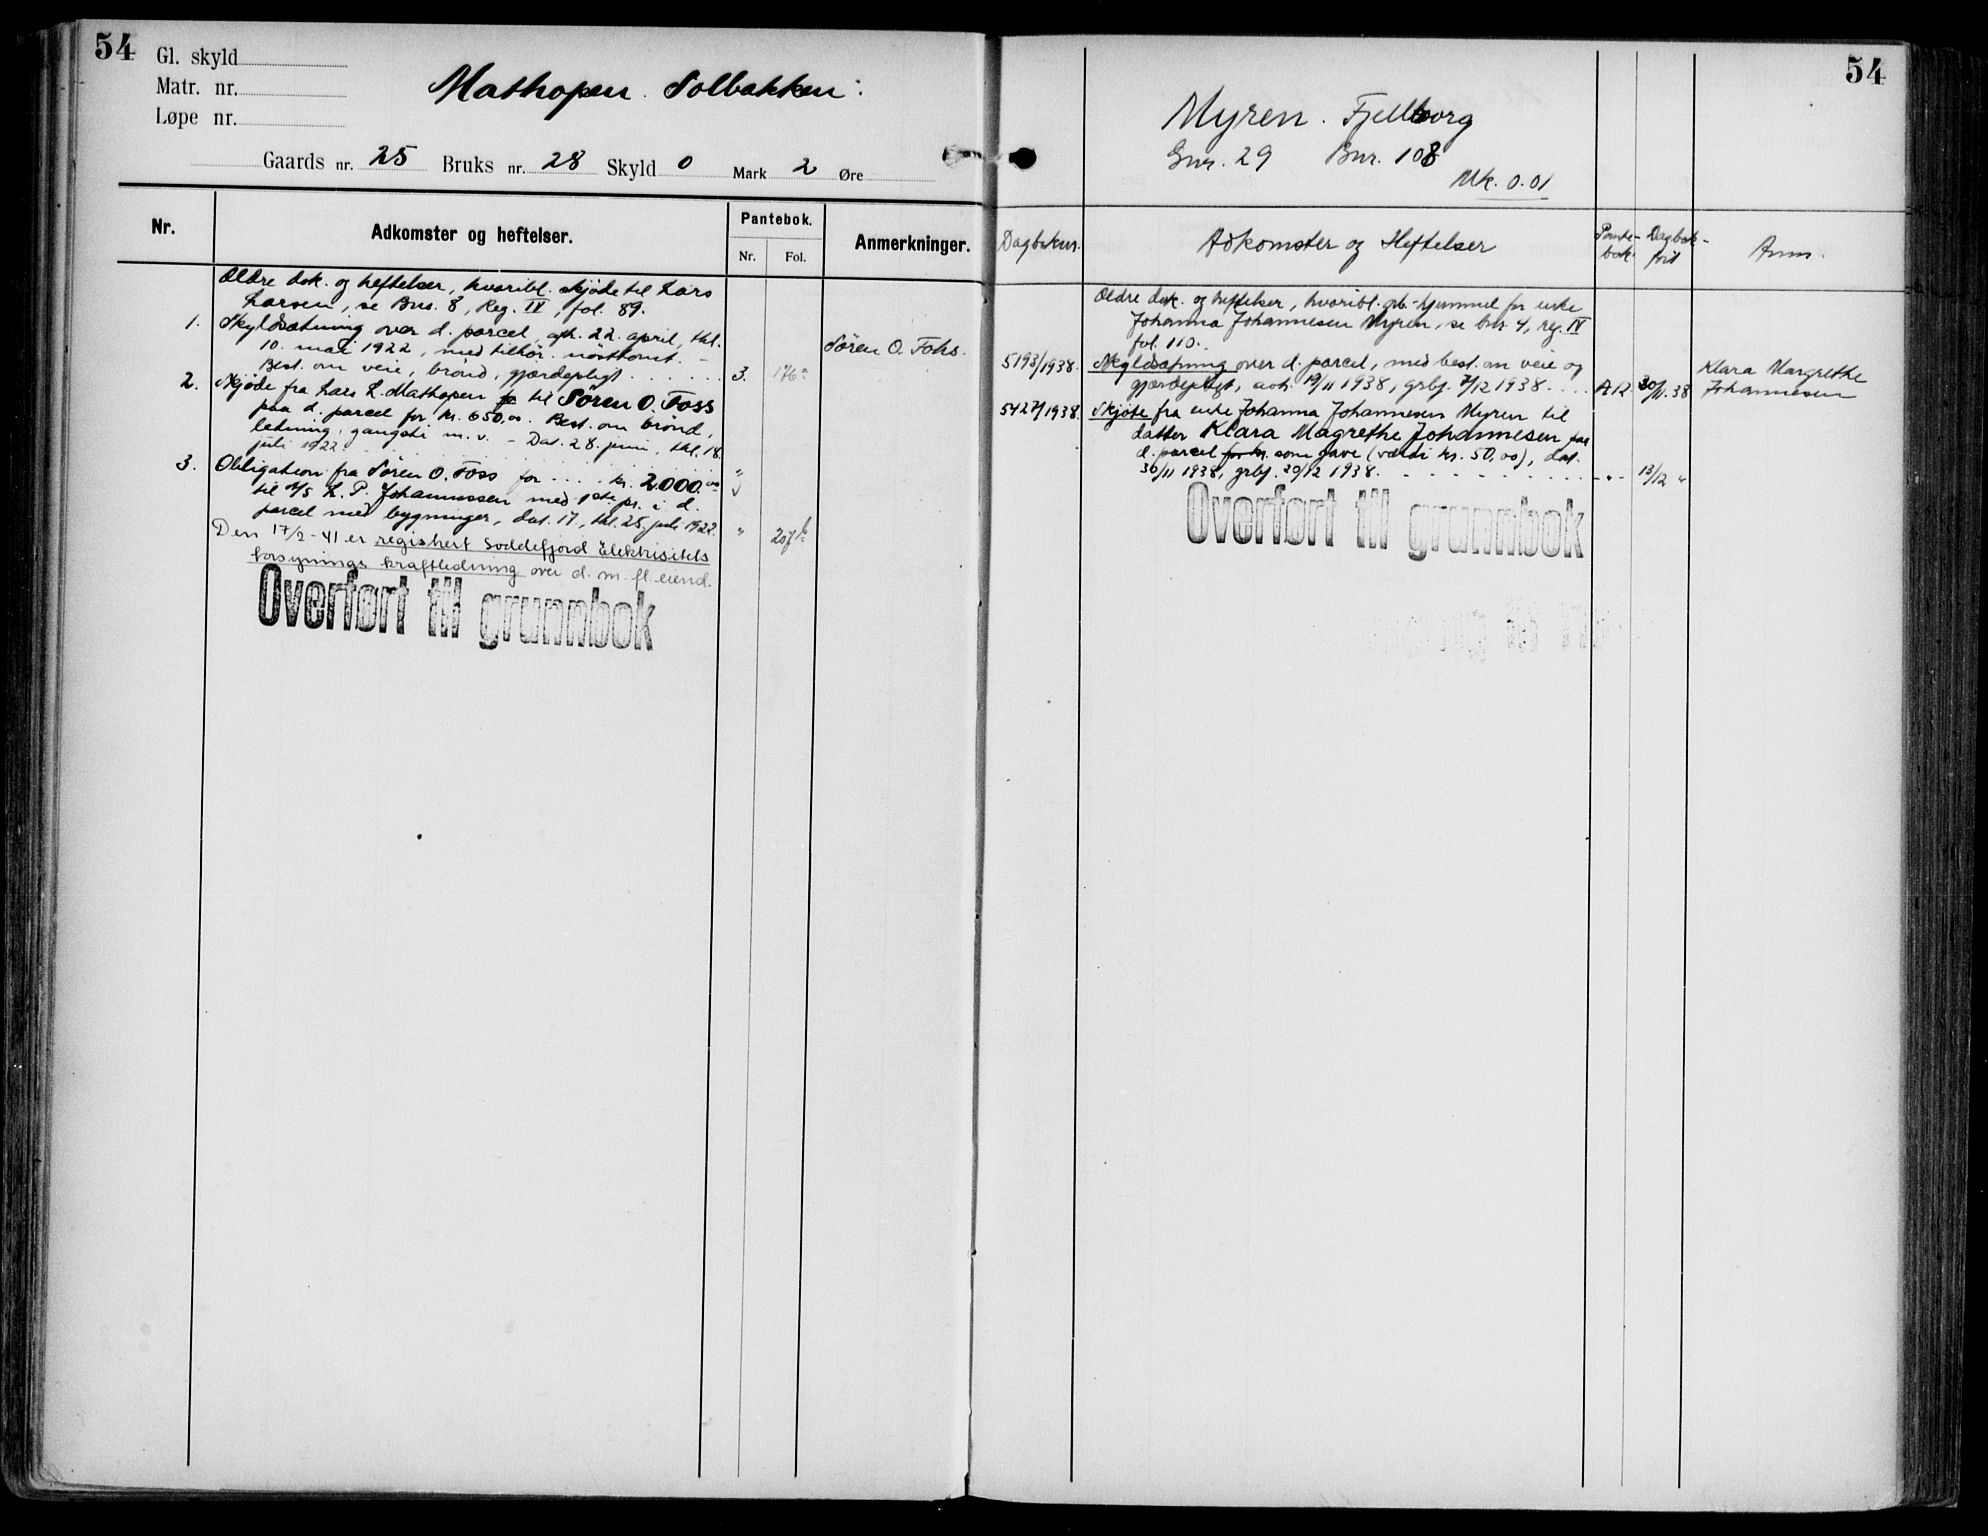 54
Gl. skyld
Matr. nr.
Løpe nr.
Mathopen. Solbakken.
Gaards nr. 25 Bruks nr. 28 Skyld 0 Mark 2 Øre
Nr.
Adkomster og heftelser.
Pantebok.
Nr. Fol.
Anmerkninger.
Ældre dok. og heftelser, hvoribl. skjöde til Lars
Larsen, se Bns. 8, Reg. IV, fol. 89.
1. Skyldsætning over d. parcel, afh. 22. april, thl.
10. mai 1922, med tilhör. nösttomt. -
Best. om veie, brönd, gjærdepligt ...... 3. 176a
Sören O. Fohs.
2. Skjöde fra Lars L. Mathopen til Sören O. Foss
paa d. parcel for kr. 650,00. Best. om brönd,
ledning, gangsti m. v. - Dat. 28. juni, thl. 18.
juli 1922. ...... "
3. Obligation fra Sören O. Foss for .... kr. 2000.00
til A/S L. P. Johannessen med 1ste pr. i d.
parcel med bygninger, dat. 17, thl. 25. juli 1922. " 207b
Den 17/2-41 er registrert Loddefjord Elektrisitets
forsynings kraftledning over d. m. fl. eiend.
Overført til grunnbok
54
Myren. Fjellborg
Gnr. 29 Bnr. 108
Mk. 0.01
Dagboknr.
Adkomster og Heftelser
Pante-
bok
Dagbok-
ført
Anm.
Ældre dok. og heftelser, hvoribl. grb.-hjemmel for enke
Johanna Johannesen Myren, se bnr 4, reg. IV
fol. 110.
5193/1938. Skyldsætning over d. parcel, med best. om veie og
gjærdepligt, avh. 19/11 1938, grbf. 7/12 1938. ... A 12. 30/11.38
Klara Margrethe
Johannesen
5427/1938. Skjöte fra enke Johanna Johannesen Myren til
datter Klara Magrethe Johannesen paa
d. parcel for kr. som gave (værdi kr. 50,00), dat.
30/11 1938, grbf. 20/12 1938. - - - - - " - 13/12 "
Overført til grunnbok